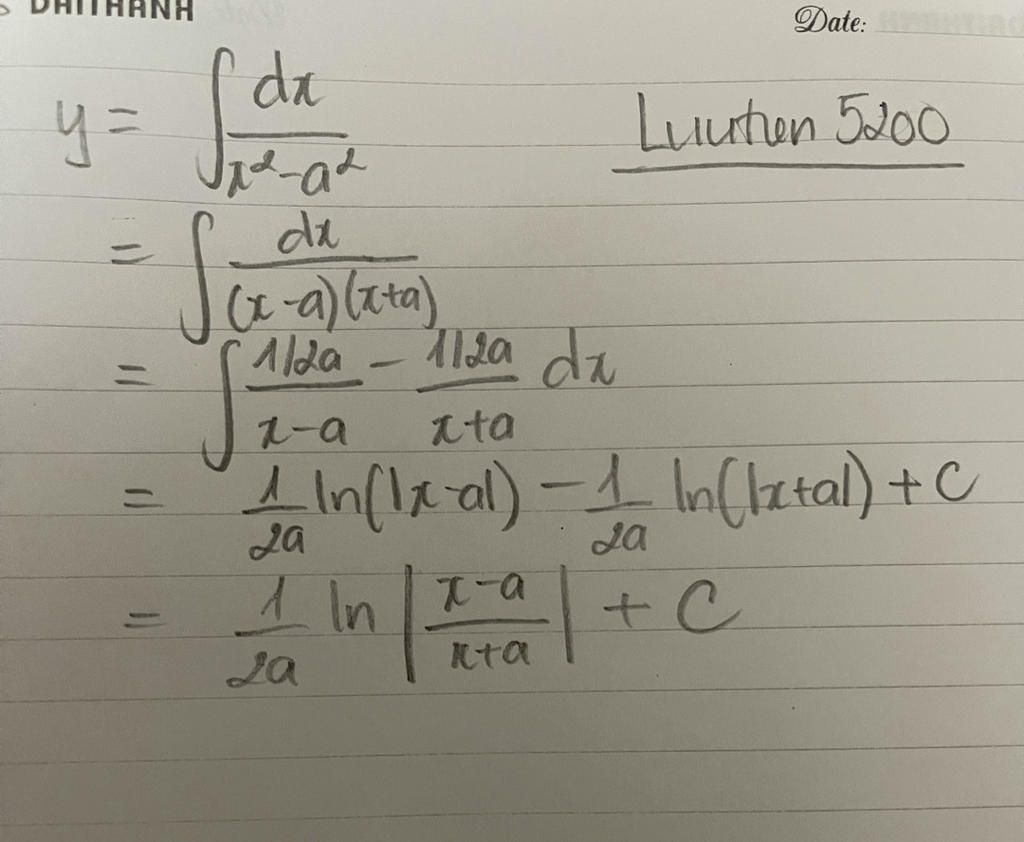 DAITHANH
Date:
y = ∫ dx / (x² - a²)
Luuhen 5200
= ∫ dx / ((x - a)(x + a))
= ∫ (1/2a)/(x - a) - (1/2a)/(x + a) dx
= 1/2a ln(|x - a|) - 1/2a ln(|x + a|) + C
= 1/2a ln |(x - a)/(x + a)| + C